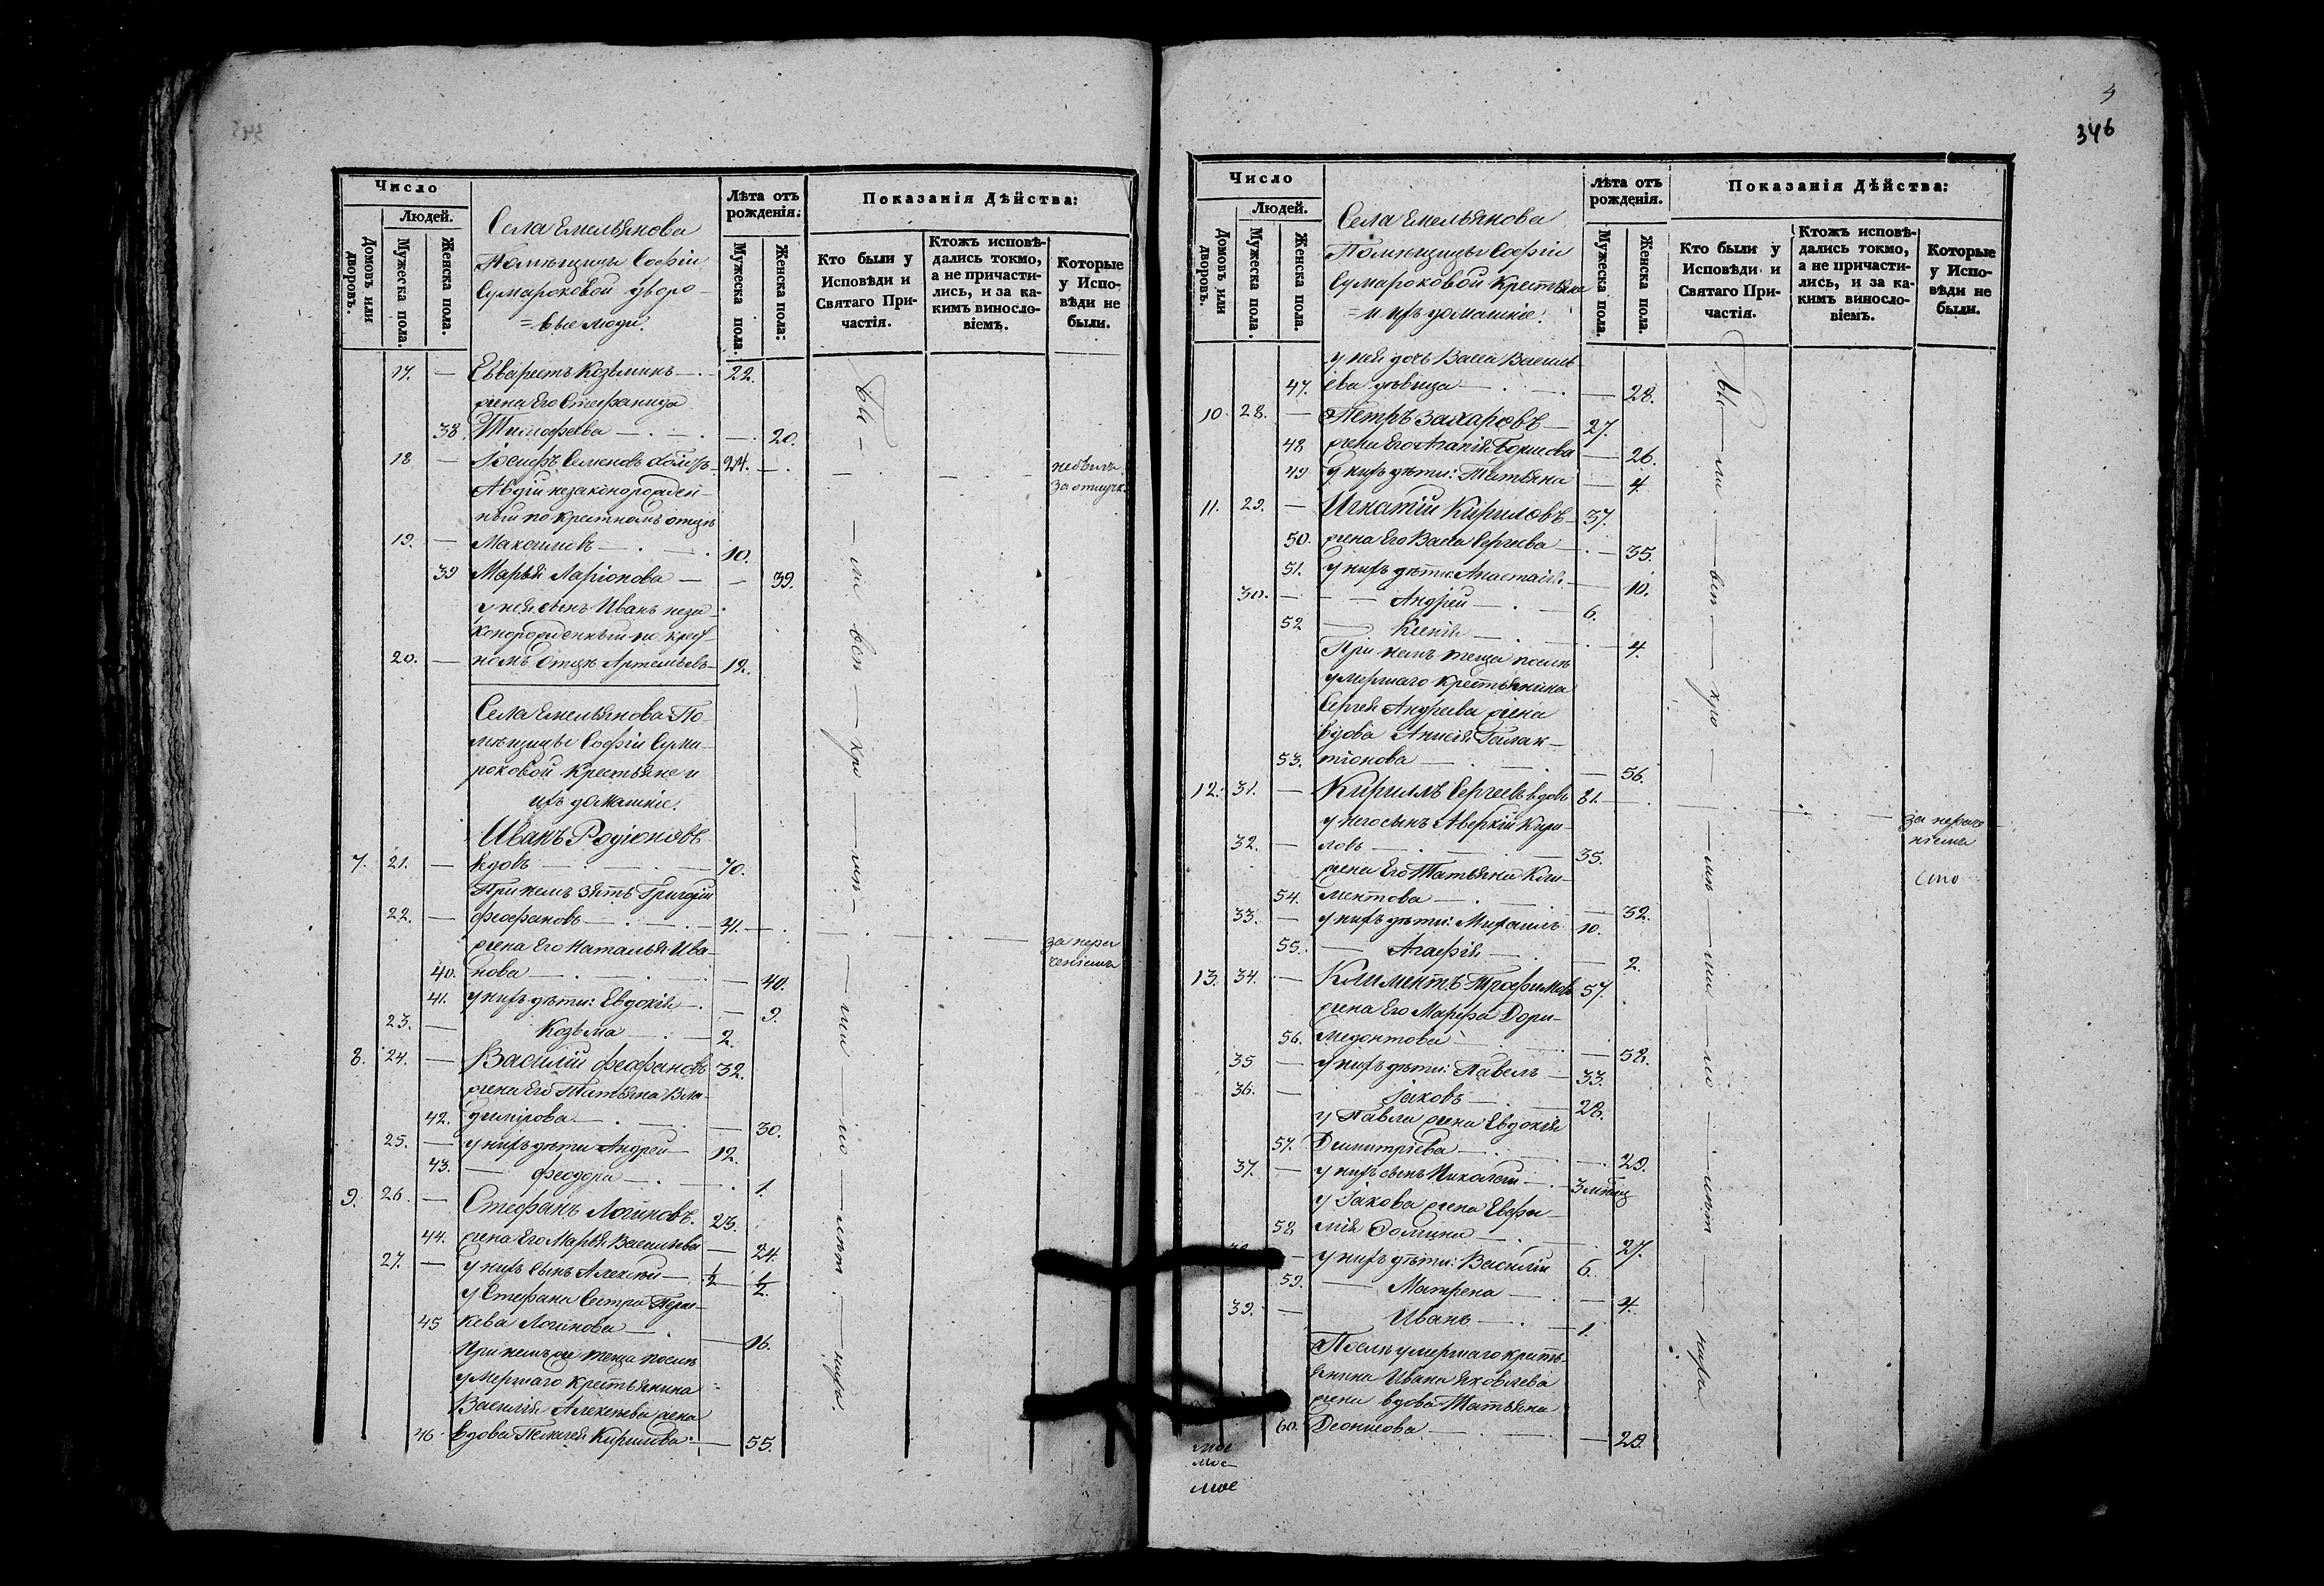 Число
Людей.
Домовъ или дворовъ.
Мужеска пола.
Женска пола.
Села Емельянова
Помѣщицы Софіи
Сумароковой дворо-
=выe люди.
Лѣта отъ рожденія:
Мужеска пола.
Женска пола:
Показанія Дѣйства:
Кто были у Исповѣди и Святаго При-частія.
Ктожъ исповѣ-дались токмо, а не причасти-лись, и за ка-кимъ винosло-віемъ.
Которые у Испо-вѣди не были.
17. — Евварестъ Козьминъ — 22.
жена Его Стефанида
38. Тимофеева — . — . — 20.
18 — Іосифъ Семеновъ холостъ 24. — не былъ
Авдій незаконорожден- за отлучк.
ный по крестномъ отцѣ
19. — Максимовъ — . — . 10.
39 Марья Ларіонова — — 39.
у нея сынъ Иванъ неза-
конорожденный по крес-
20. — номъ отцѣ Артемьевъ 12.
Села Емельянова По-
мѣщицы Софіи Сума-
роковой Крестьяне и
ихъ домашніе.
Иванъ Родіоновъ
7. 21. — вдовъ — . — . — 70.
При немъ зять Григорій
22. — Феофановъ — . — 41. —
жена Его Наталья Ива- за нера
40. нова — . — . — 40. ченіемъ
41. у нихъ дѣти: Евдокія — . — 9.
23. — Козьма — . — 2.
8. 24. — Василій Феофановъ 32.
жена Его Татьяна Вла-
42. димірова — . — . — 30.
25. — у нихъ дѣти Андрей — 12.
43. — Феодора — . — . 1.
9. 26. — Стефанъ Логиновъ. 23.
44. жена Его Марья Васильева — 24.
27. — у нихъ сынъ Алексѣй — 1/2 — 1/2.
у Стефана Сестра Парас-
45 кева Логинова — . — 16.
При немъ же теща послѣ
умершаго Крестьянина
Василія Алексѣева жена
46. вдова Пелагея Кирилова — 55.
Бы — ли вси — кро — мѣ — ни — мо — лѣт. — нихъ.
4
346
Число
Людей.
Домовъ или дворовъ.
Мужеска пола.
Женска пола.
Села Емельянова
Помѣщицы Софіи
Сумароковой Крестьяне
=и ихъ домашніе.
Лѣта отъ рожденія.
Мужеска пола.
Женска пола.
Показанія Дѣйства:
Кто были у Исповѣди и Святаго При-частія.
Ктожъ исповѣ-дались токмо, а не причасти-лись, и за ка-кимъ винosло-віемъ.
Которые у Испо-вѣди не были.
у нея дочь Васса Василь-
47. ева дѣвица — . — . — 28.
10. 28. — Петръ Захаровъ — 27.
48 жена Его Агапія Борисова — 26.
49 у нихъ дѣти: Татьяна — 4.
11. 29. — Игнатій Кириловъ — 37.
50. жена Его Васса Сергеева — . — 35.
51. у нихъ дѣти: Анастасія — 10.
30. — — Андрей — . — 6.
52 — Ксенія — . — 4.
При немъ теща послѣ
умершаго Крестьянина
Сергея Андреева жена
вдова Анисія Галак-
53. тіонова — . — . — 56.
12. 31. — Кириллъ Сергеевъ вдовъ 81. —
у него сынъ Аверкій Кири- за нераче
32. — ловъ — . — . — 35. ніемъ
жена Его Татьяна Кли-
54. ментова — . — . — 32.
33. — у нихъ дѣти: Михаилъ 10.
55. — Агафія — . — 2.
13. 34. — Климентъ Трофимовъ 57.
жена Его Марфа Дори-
56. медонтова — . — 58.
35 — у нихъ дѣти: Павелъ — 33.
36. — Іаковъ — . — 28.
у Павла жена Евдокія
57. Димитріева — . — . 29.
37. — у нихъ сынъ Николай — . 3 мѣсяц
у Іакова жена Евфи-
58 мія Фомина — . — . 27.
— у нихъ дѣти: Василій 6.
59. — Матрена — . — 4.
39. — Иванъ — . — 1.
Послѣ умершаго кресть-
янина Ивана Яковлева
жена вдова Татьяна
60. Деонисова — . — . — 29.
Бы — ли — вси — кро — мѣ — ни — мо — лѣт — нихъ
мое
мое
мое